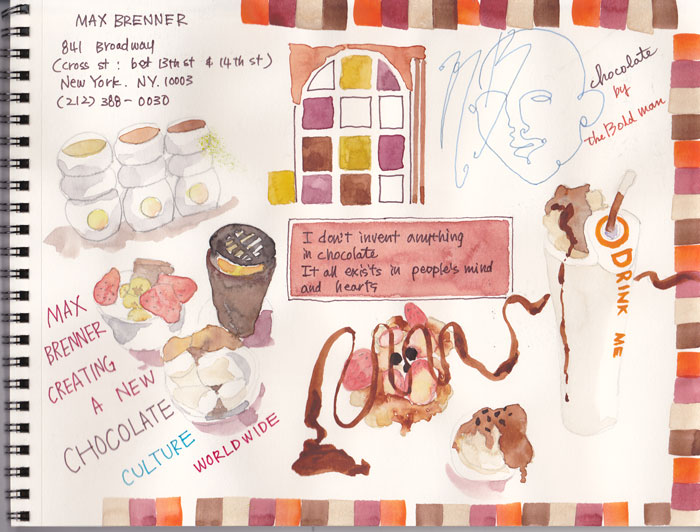 MAX BRENNER
841 Broadway
(Cross st : bet 13th st & 14th st)
New York. NY. 10003
(212) 388-0030
chocolate
by
the Bold man
I don't invent anything
in chocolate
It all exists in people's mind
and hearts
DRINK ME
MAX
BRENNER
CREATING
A NEW
CHOCOLATE
CULTURE
WORLDWIDE